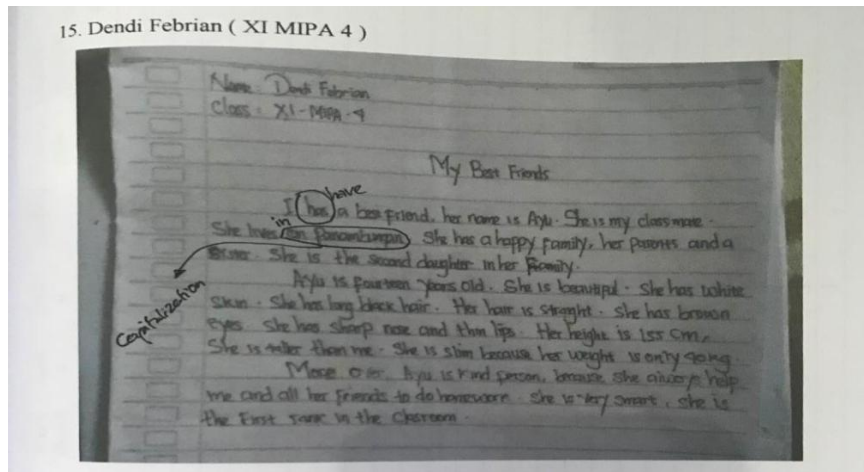 15. Dendi Febrian ( XI MIPA 4 )
Name : Dendi Febrian
Class : XI-MIPA-4
My Best Friends
have
I has a best friend, her name is Ayu. She is my classmate.
in
She lives on Panambungan She has a happy family, her parents and a
Sister. She is the second daughter in her Family.
Capitalization
Ayu is fourteen years old. She is beautiful. She has white
Skin. She has long black hair. Her hair is straight. She has brown
eyes. She has sharp nose and thin lips. Her height is 155 cm,
She is taller than me. She is slim because her weight is only 40 kg
More over Ayu is kind person, because she always help
me and all her friends to do homework. She is very smart, she is
the First rank in the Classroom.